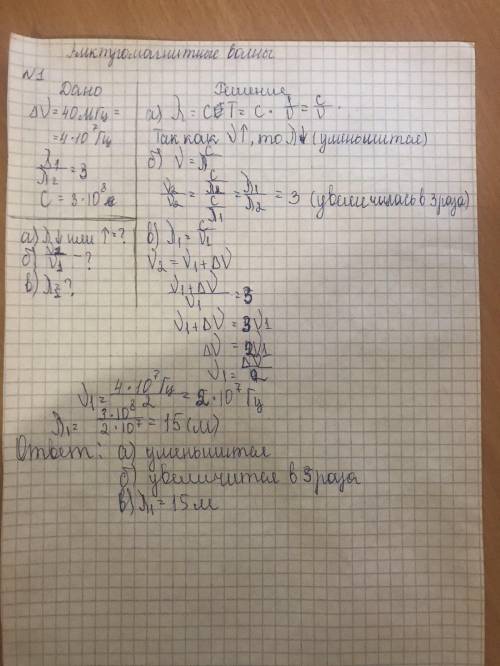 Электромагнитные волны
№1
Дано
ΔV = 40 МГц =
= 4·10⁷ Гц
λ₁/λ₂ = 3
C = 3·10⁸
а) λ↓ или ↑ = ?
б) V₂/V₁ - ?
в) λ₁ = ?
Решение
а) λ = C T = C · 1/V = C/V.
Так как V↑, то λ↓ (уменьшится)
б) V = C/λ
V₂/V₂ = (C/λ₂)/(C/λ₁) = λ₁/λ₂ = 3 (увеличилась в 3 раза)
в) λ₁ = C/V₁
V₂ = V₁ + ΔV
(V₁ + ΔV)/V₁ = 3
V₁ + ΔV = 3V₁
ΔV = 2V₁
V₁ = ΔV/2
V₁ = 4·10⁷ Гц/2 = 2·10⁷ Гц
λ₁ = 3·10⁸/2·10⁷ = 15 (м)
Ответ: а) уменьшится
б) увеличится в 3 раза
в) λ₁ = 15 м